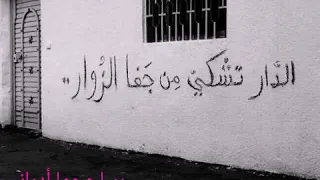 الدَّار تَشْكِيْ مِن جَفا الزُوار ..